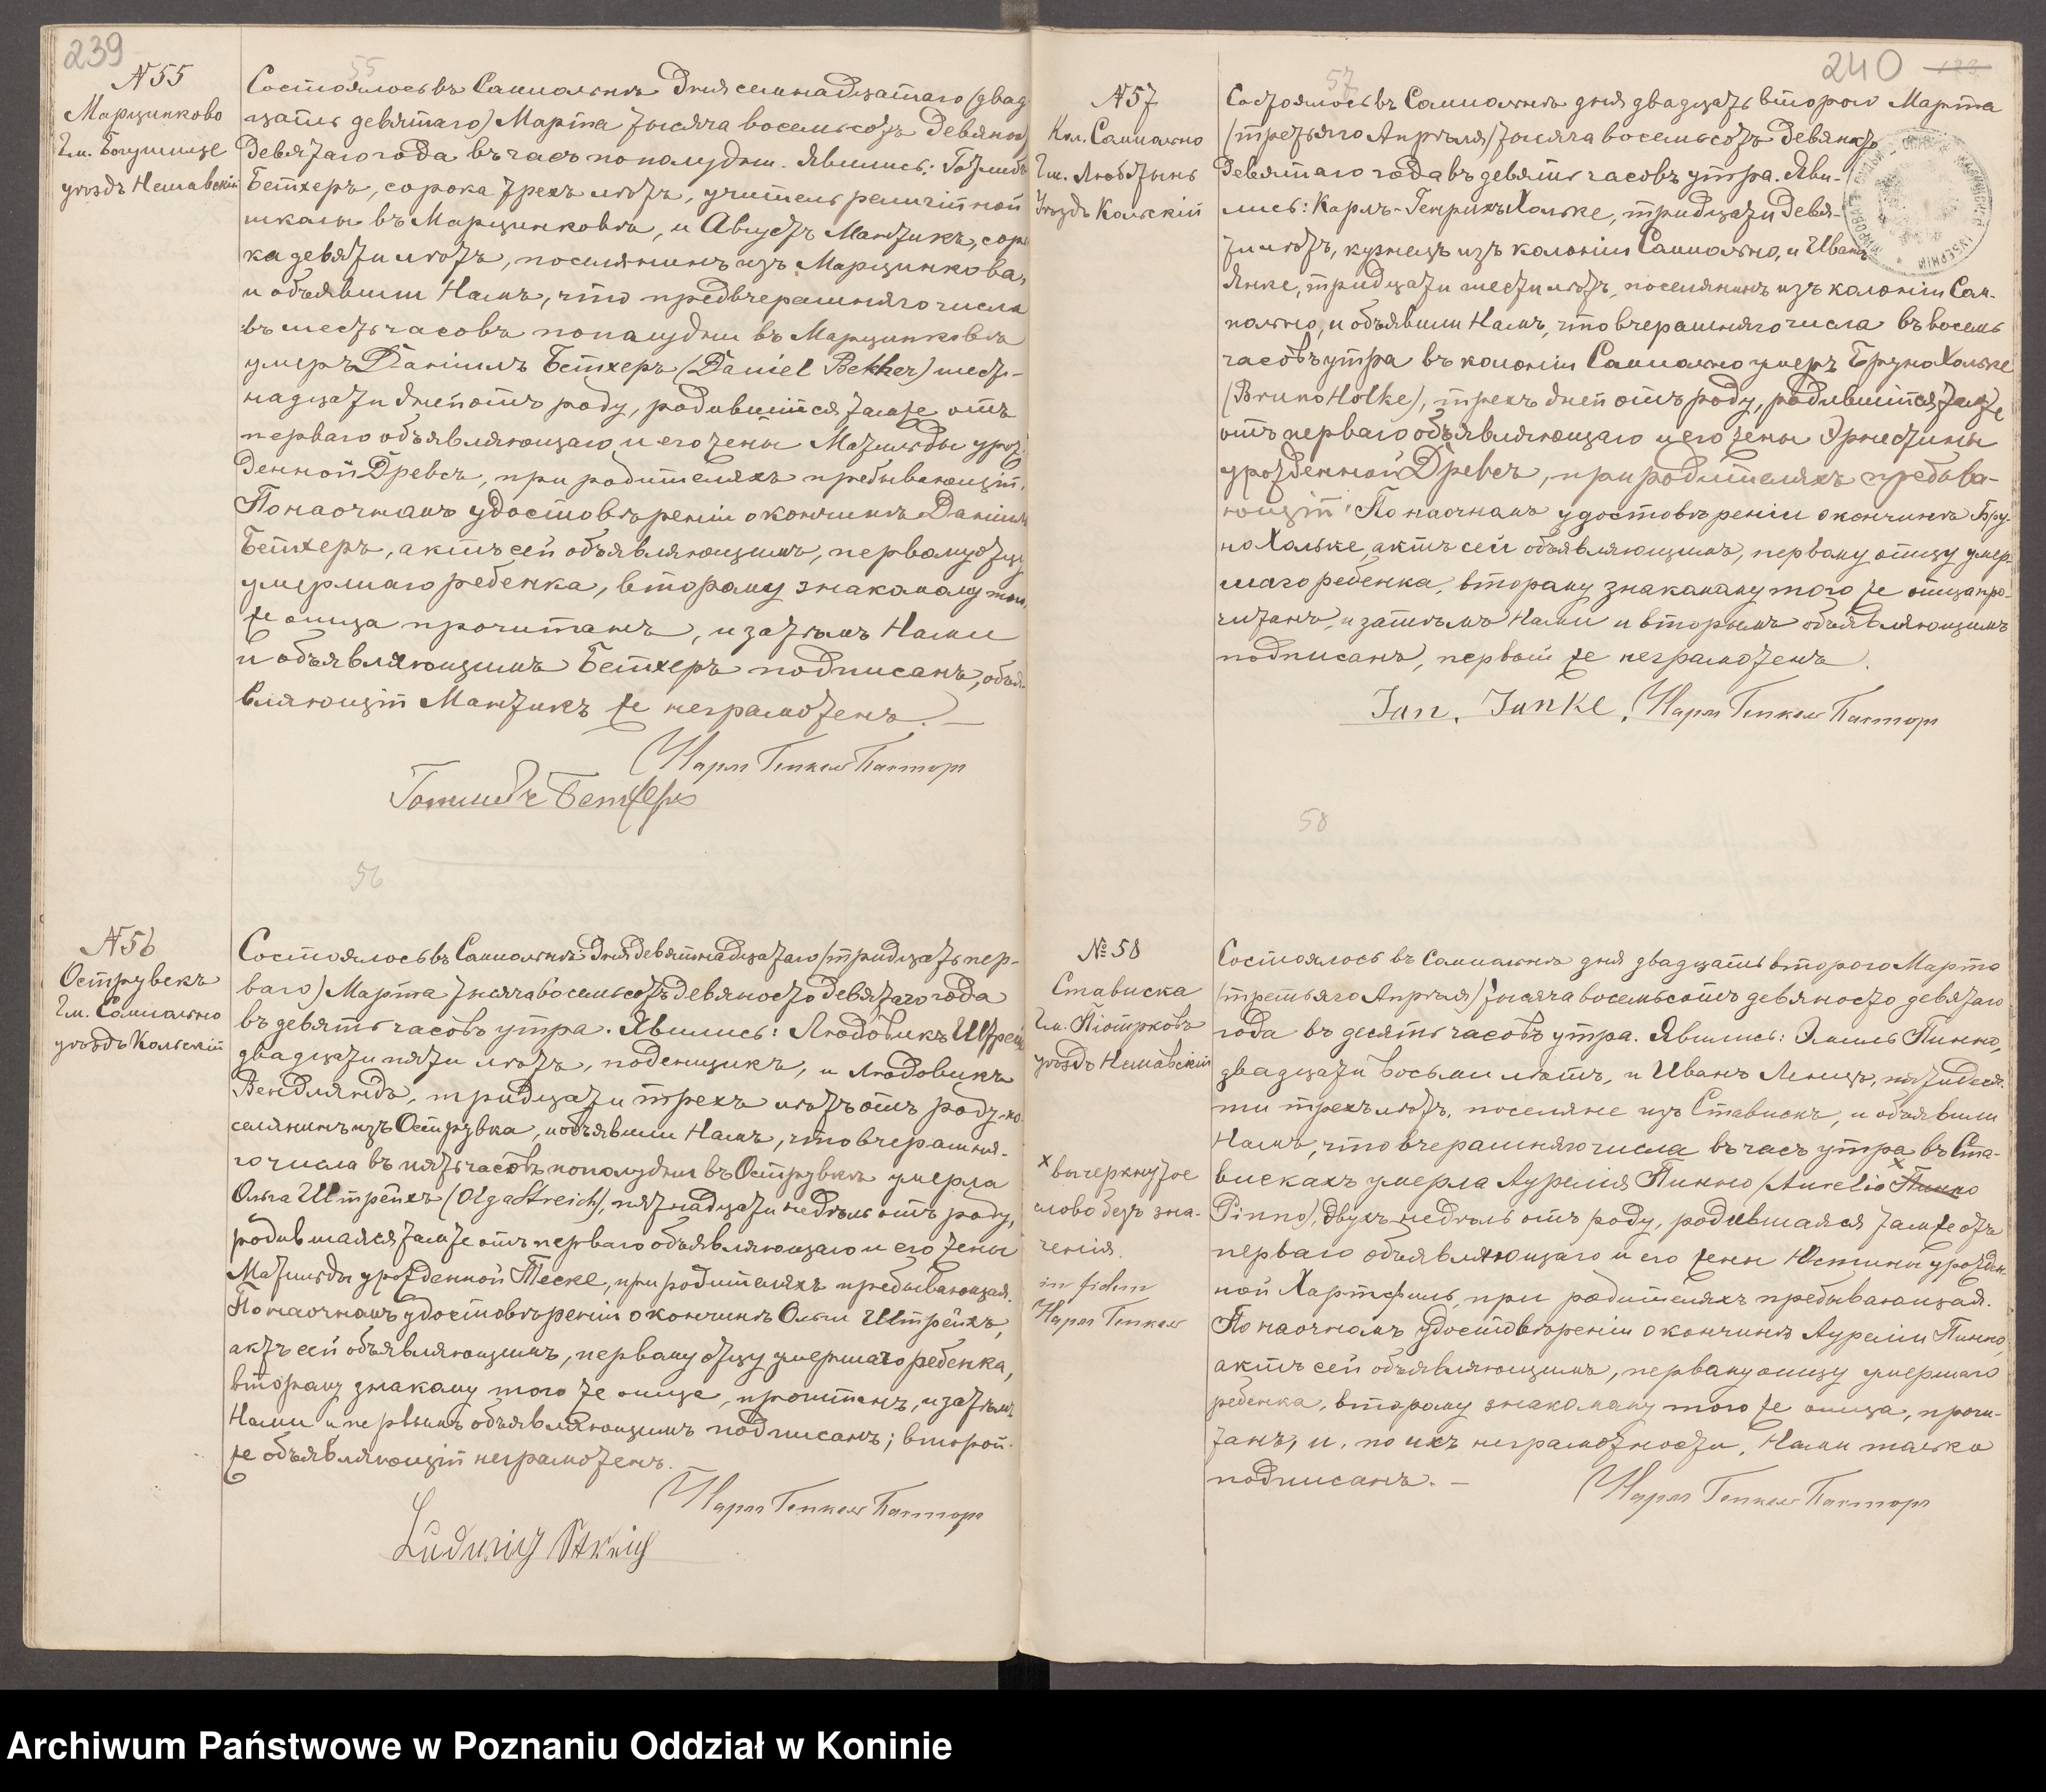 239
N 55
Марцинково
Гм. Богушице
уѣздъ Нешавскій
55
Состоялось въ Сампольнѣ дня семнадцатаго (двад-
цать девятаго) Марта тысяча восемьсотъ девяносто
девятаго года въ часъ пополудни. Явились: Готлибъ
Бетхеръ, сорока трехъ лѣтъ, учитель религійной
школы въ Марцинковѣ, и Августъ Мантикъ, соро-
ка девяти лѣтъ, поселянинъ изъ Марцинкова,
и объявили Намъ, что предвчерашняго числа
въ шесть часовъ пополудни въ Марцинковѣ
умеръ Даніилъ Бетхеръ (Daniel Bethер) шест-
надцати дней отъ роду, родившійся тамже отъ
перваго объявляющаго и его жены Матильды урож-
денной Древсъ, при родителяхъ пребывающій.
По наочномъ удостовѣреніи о кончинѣ Даніила
Бетхеръ, актъ сей объявляющимъ, первому отцу
умершаго ребенка, второму знакомому того
же отца прочитанъ, и затѣмъ Нами
и объявляющимъ Бетхеръ подписанъ, объя-
вляющій Мантикъ же неграмотенъ. —
Карлъ Генкель Пасторъ
Готлибъ Бетхеръ
56
N 56
Острувекъ
Гм. Сампольно
уѣздъ Кольскій
Состоялось въ Сампольнѣ дня девятнадцатаго (тридцать пер-
ваго) Марта тысяча восемьсотъ девяносто девятаго года
въ девять часовъ утра. Явились: Людовикъ Штрейхъ
двадцати пяти лѣтъ, поденщикъ, и Людовикъ
Вендляндъ, тридцати трехъ лѣтъ отъ роду, по-
селянинъ изъ Острувка, и объявили Намъ, что вчерашня-
го числа въ пять часовъ пополудни въ Острувкѣ умерла
Ольга Штрейхъ (Olga Streich), пятнадцати недѣль отъ роду,
родившаяся тамже отъ перваго объявляющаго и его жены
Матильды урожденной Теске, при родителяхъ пребывающая.
По наочномъ удостовѣреніи о кончинѣ Ольги Штрейхъ,
актъ сей объявляющимъ, первому отцу умершаго ребенка,
второму знакому того же отца, прочитанъ, и затѣмъ
Нами и первымъ объявляющимъ подписанъ; второй
же объявляющій неграмотенъ. —
Карлъ Генкель Пасторъ
Ludwig Streich
240
N 57
Кол. Сампольно
Гм. Любстынь
Уѣздъ Кольскій
57
Состоялось въ Сампольнѣ дня двадцать второго Марта
(третьяго Апрѣля) тысяча восемьсотъ девяносто
девятаго года въ девять часовъ утра. Яви-
лись: Карлъ-Генрихъ Хольке, тридцати девя-
ти лѣтъ, кузнецъ изъ колоніи Сампольно, и Иванъ
Янке, тридцати шести лѣтъ, поселянинъ изъ колоніи Сам-
польно, и объявили Намъ, что вчерашняго числа въ восемь
часовъ утра въ колоніи Сампольно умеръ Бруно Хольке
(Bruno Holke), трехъ дней отъ роду, родившійся тамже
отъ перваго объявляющаго и его жены Эрнестины
урожденной Древсъ, при родителяхъ пребыва-
ющій. По наочномъ удостовѣреніи о кончинѣ Бру-
но Хольке, актъ сей объявляющимъ, первому отцу умер-
шаго ребенка, второму знакомому того же отца про-
читанъ, и затѣмъ Нами и вторымъ объявляющимъ
подписанъ, первый же неграмотенъ.
Jan. Janke, Карлъ Генкель Пасторъ
58
№ 58
Стависка
Гм. Піотрковъ
уѣздъ Нешавскій
Состоялось въ Сампольнѣ дня двадцать второго Марта
(третьяго Апрѣля) тысяча восемьсотъ девяносто девятаго
года въ десять часовъ утра. Явились: Эмиль Пинно,
двадцати восьми лѣтъ, и Иванъ Ленцъ, пятидеся-
ти трехъ лѣтъ, поселяне изъ Ставискъ, и объявили
Намъ, что вчерашняго числа въ часъ утра въ Ста-
вискахъ умерла Аурелія Пинно (Aurelie ˣ Пинно
Pinno), двухъ недѣль отъ роду, родившаяся тамже отъ
перваго объявляющаго и его жены Юстины урожден-
ной Хартфиль, при родителяхъ пребывающая.
По наочномъ удостовѣреніи о кончинѣ Ауреліи Пинно,
актъ сей объявляющимъ, первому отцу умершаго
ребенка, второму знакомому того же отца, прочи-
танъ, и, по ихъ неграмотности, Нами только
подписанъ. —
Карлъ Генкель Пасторъ
ˣ вычеркнутое
слово безъ зна-
ченія.
in fidem
Карлъ Генкель
Archiwum Państwowe w Poznaniu Oddział w Koninie